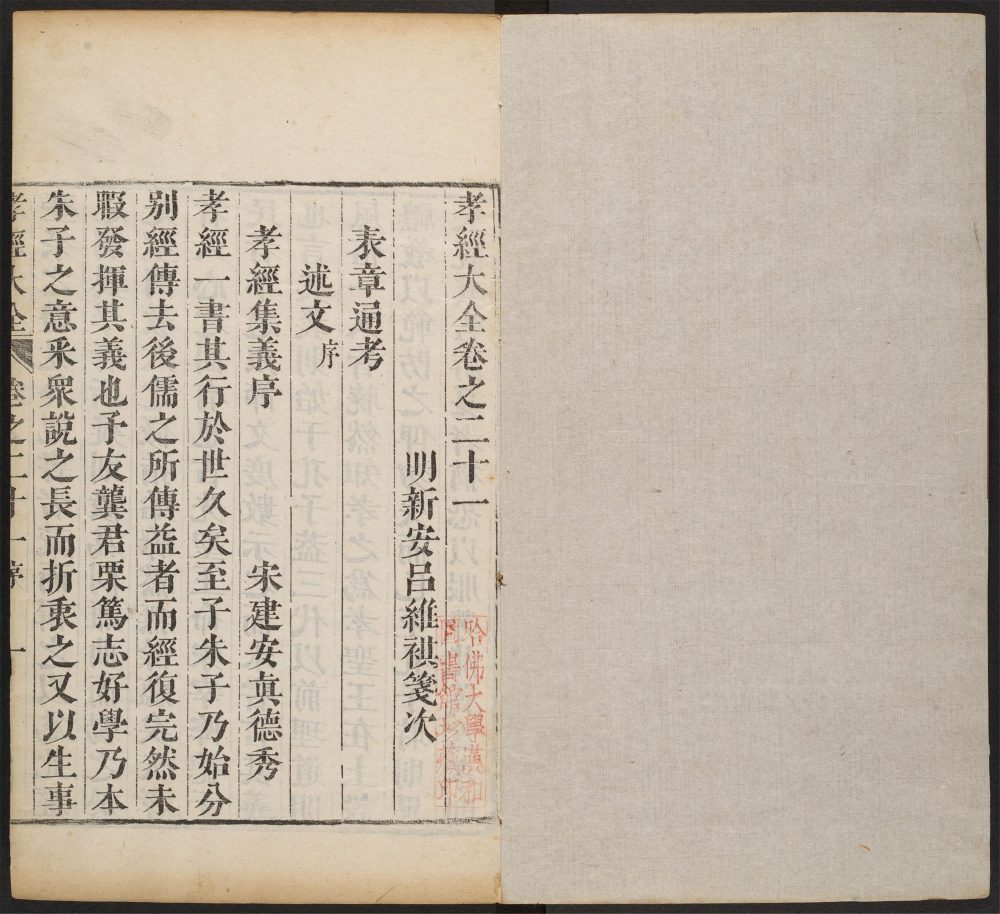 孝經大全卷之二十一
明新安呂維祺箋次
表章通考
述文序
孝經集義序 宋建安眞德秀
孝經一書其行於世久矣至子朱子乃始分
别經傳去後儒之所傳益者而經復完然未
暇發揮其義也予友龔君栗篤志好學乃本
朱子之意釆衆說之長而折衷之又以生事
孝經大全 卷之二十一序 一
哈佛大學漢和
圖書館珍藏印